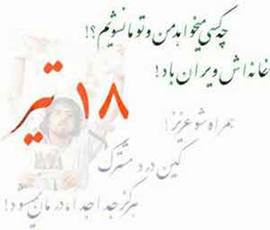 چه کسی میخواهد من و تو ما نشویم؟!
خانه‌اش ویران باد!
۱۸ تیر
همراه شو عزیز!
کین درد مشترک
هرگز جدا جدا، درمان نمیشود!